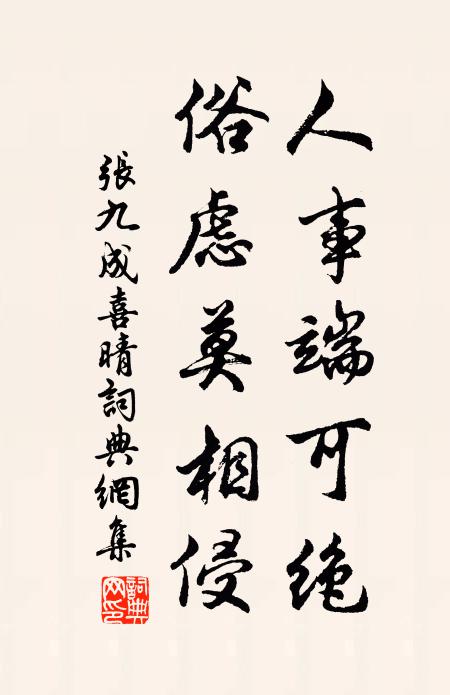 人事端可绝
俗虑莫相侵
張九成喜晴詞典網集
詞典网印